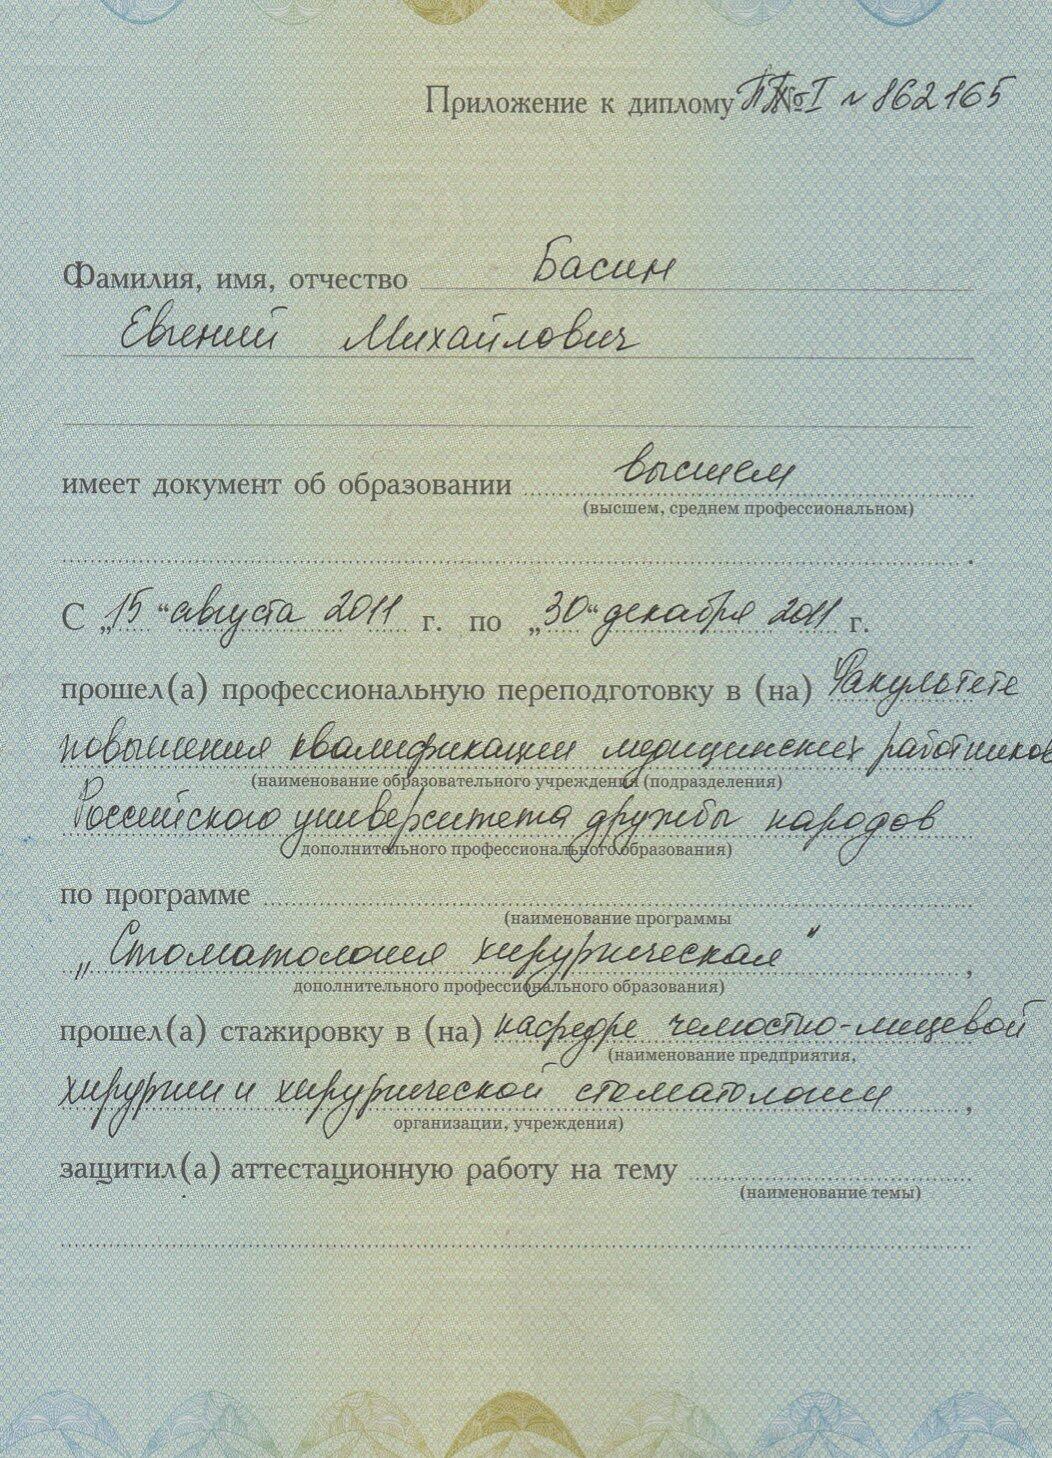 Приложение к диплому ПП №I № 862165
Фамилия, имя, отчество Басин
Евгений Михайлович
имеет документ об образовании высшем
(высшем, среднем профессиональном)
С „15“ августа 2011 г. по „30“ декабря 2011 г.
прошел(а) профессиональную переподготовку в (на) Факультете
повышения квалификации медицинских работников
(наименование образовательного учреждения (подразделения)
Российского университета дружбы народов
дополнительного профессионального образования)
по программе
(наименование программы
„Стоматология хирургическая“,
дополнительного профессионального образования)
прошел(а) стажировку в (на) кафедре челюстно-лицевой
(наименование предприятия,
хирургии и хирургической стоматологии,
организации, учреждения)
защитил(а) аттестационную работу на тему
(наименование темы)